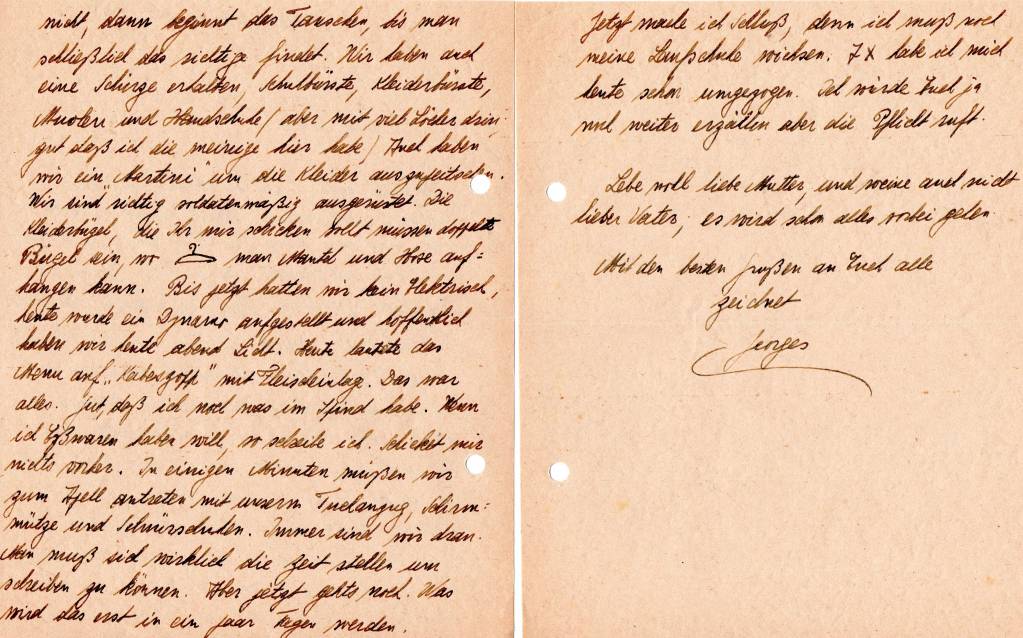 nicht, dann beginnt das Tauschen, bis man
schließlich das richtige findet. Wir haben auch
eine Schürze erhalten, Schuhbürste, Kleiderbürste,
und Handschuhe (aber mit viel Löcher drin,
gut daß ich die meinige hier habe) Auch haben
wir ein "Martini" um die Kleider auszupeitschen.
Wir sind richtig soldatenmäßig ausgerüstet. Die
Kleiderbügel, die Ihr mir schicken sollt müssen doppelte
Bügel sein, wo man Mantel und Hose auf=
hängen kann. Bis jetzt hatten wir kein Elektrisch,
heute wurde ein Dynamo aufgestellt und hoffentlich
haben wir heute abend Licht. Heute lautete das
Menu auf "Kabesgopp" mit Fleischeinlag. Das war
alles. Gut, daß ich noch was im Spind habe. Wenn
ich Eßwaren haben will, so schreibe ich. Schicket mir
nichts vorher. In einigen Minuten müßen wir
zum Apell antreten mit unserm Tuchanzug, Schirm=
mütze und Schnürschuhen. Immer sind wir dran.
Man muß sich wirklich die Zeit stellen um
schreiben zu können. Aber jetzt gehts noch. Was
wird das erst in ein paar Tagen werden.
Jetzt mache ich Schluß, denn ich muß noch
meine Laufschuhe wichsen. 7x habe ich mich
heute schon umgezogen. Ich würde Euch ja
noch weiter erzählen aber die Pflicht ruft.
Lebe wohl liebe Mutter, und weine auch nicht
lieber Vater, es wird schon alles vorbei gehen.
Mit den besten Grüßen an Euch alle
zeichnet
Georges